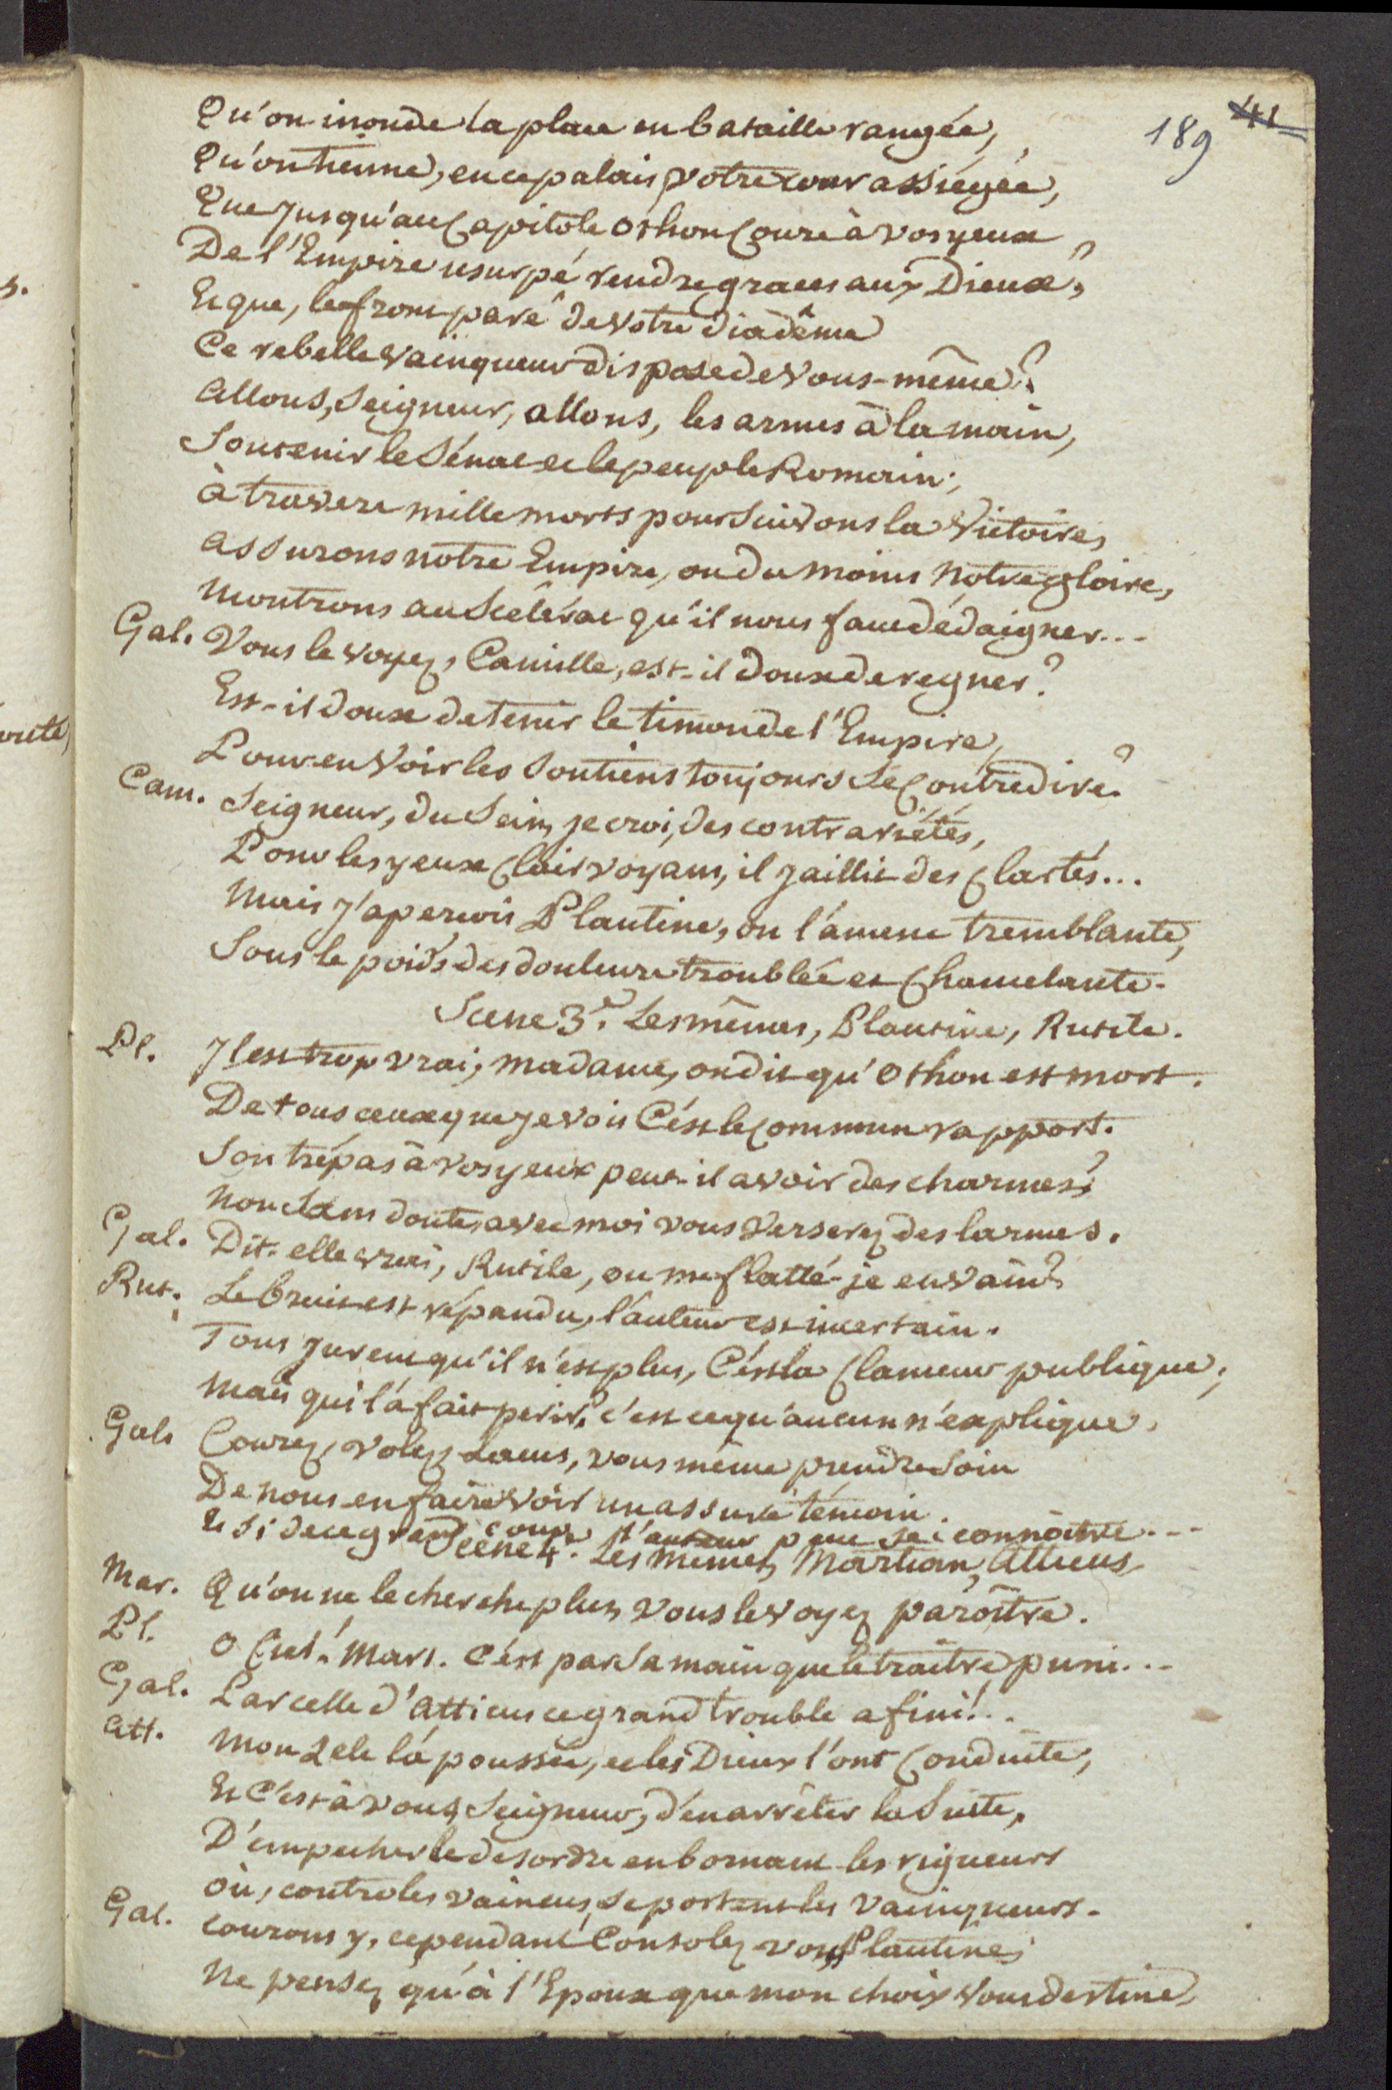 189 41
Qu'on inonde la place en bataille rangée,
Qu'on tienne, en ce palais, votre cour assiégée,
Que jusqu'au Capitole Othon coure à vos yeux
De l'Empire usurpé rendre graces aux Dieux?
Et que, le front paré de votre diadême
Ce rebelle vainqueur dispose de vous-même?
Allons, Seigneur, allons, les armes à la main,
Soutenir le Sénat et le peuple Romain;
à travers mille morts poursuivons la Victoire,
assurons notre Empire, ou du moins notre gloire,
Montrons au Scélérat qu'il nous faut dédaigner...
Gal. Vous le voyez, Camille, est-il doux de regner?
Est-il doux de tenir le timon de l'Empire,
Pour en voir les Soutiens toujours se contredire?
Cam. Seigneur, du Sein, je croi, des contrariétés,
Pour les yeux clairvoyans, il jaillit des clartés...
Mais j'aperçois Plautine, on l'amene tremblante,
Sous le poids des douleurs troublée et chancelante.
Scene 3e. Les mêmes, Plautine, Rutile.
Pl. Il est trop vrai, madame, on dit qu'Othon est mort.
De tous ceux que je vois C'est le commun rapport.
Son trépas à vos yeux peut-il avoir des charmes?
Non sans doute, avec moi vous verserez des larmes.
Gal. Dit-elle vrai, Rutile, ou me flatté-je en vain?
Rut. Le bruit est répandu, l'auteur est incertain.
Tous jurent qu'il n'est plus, C'est la clameur publique;
Mais qui l'a fait périr? c'est ce qu'aucun n'explique.
Gal. Courez, volez Lacus, vous même prendre soin
De nous en faire voir un assuré témoin.
Et si de ce grand coup l'auteur peut se connoître...
Scène 4e. Les mêmes, Martian, Atticus
Mar. Qu'on ne le cherche plus, vous le voyez paroître.
Pl. O Ciel! Mart. C'est par sa main que le traître puni...
Gal. Par celle d'Atticus ce grand trouble a fini!..
Att. Mon Zele l'a poussée, et les Dieux l'ont conduite,
Et C'est à vous, Seigneur, d'en arrêter la Suite,
D'empecher le desordre en bornant les rigueurs
Où, contre les vaincus, se portent les vainqueurs.
Gal. Courons y, cependant Consolez vous, Plautine;
Ne pensez qu'à l'Epoux que mon choix vous destine,